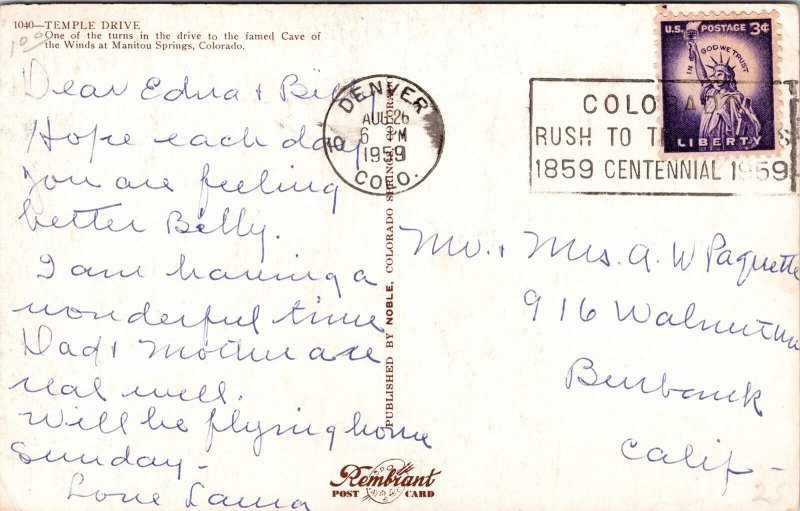 1040—TEMPLE DRIVE
One of the turns in the drive to the famed Cave of
the Winds at Manitou Springs, Colorado.
Dear Edna + Billy
Hope each day
you are feeling
better Billy.
I am having a
wonderful time
Dad + Mother are
real well.
Will be flying home
Sunday-
Love
DENVER
AUG 26
6 PM
1959
COLO.
COLORADO
RUSH TO
1859 CENTENNIAL 1959
U.S. POSTAGE 3¢
IN GOD WE TRUST
LIBERTY
PUBLISHED BY NOBLE, COLORADO SPRINGS, COLORADO
Mr. + Mrs. A. W Paquette
916 Walnut
Burbank
Calif-
Rembrant
POST CARD
25